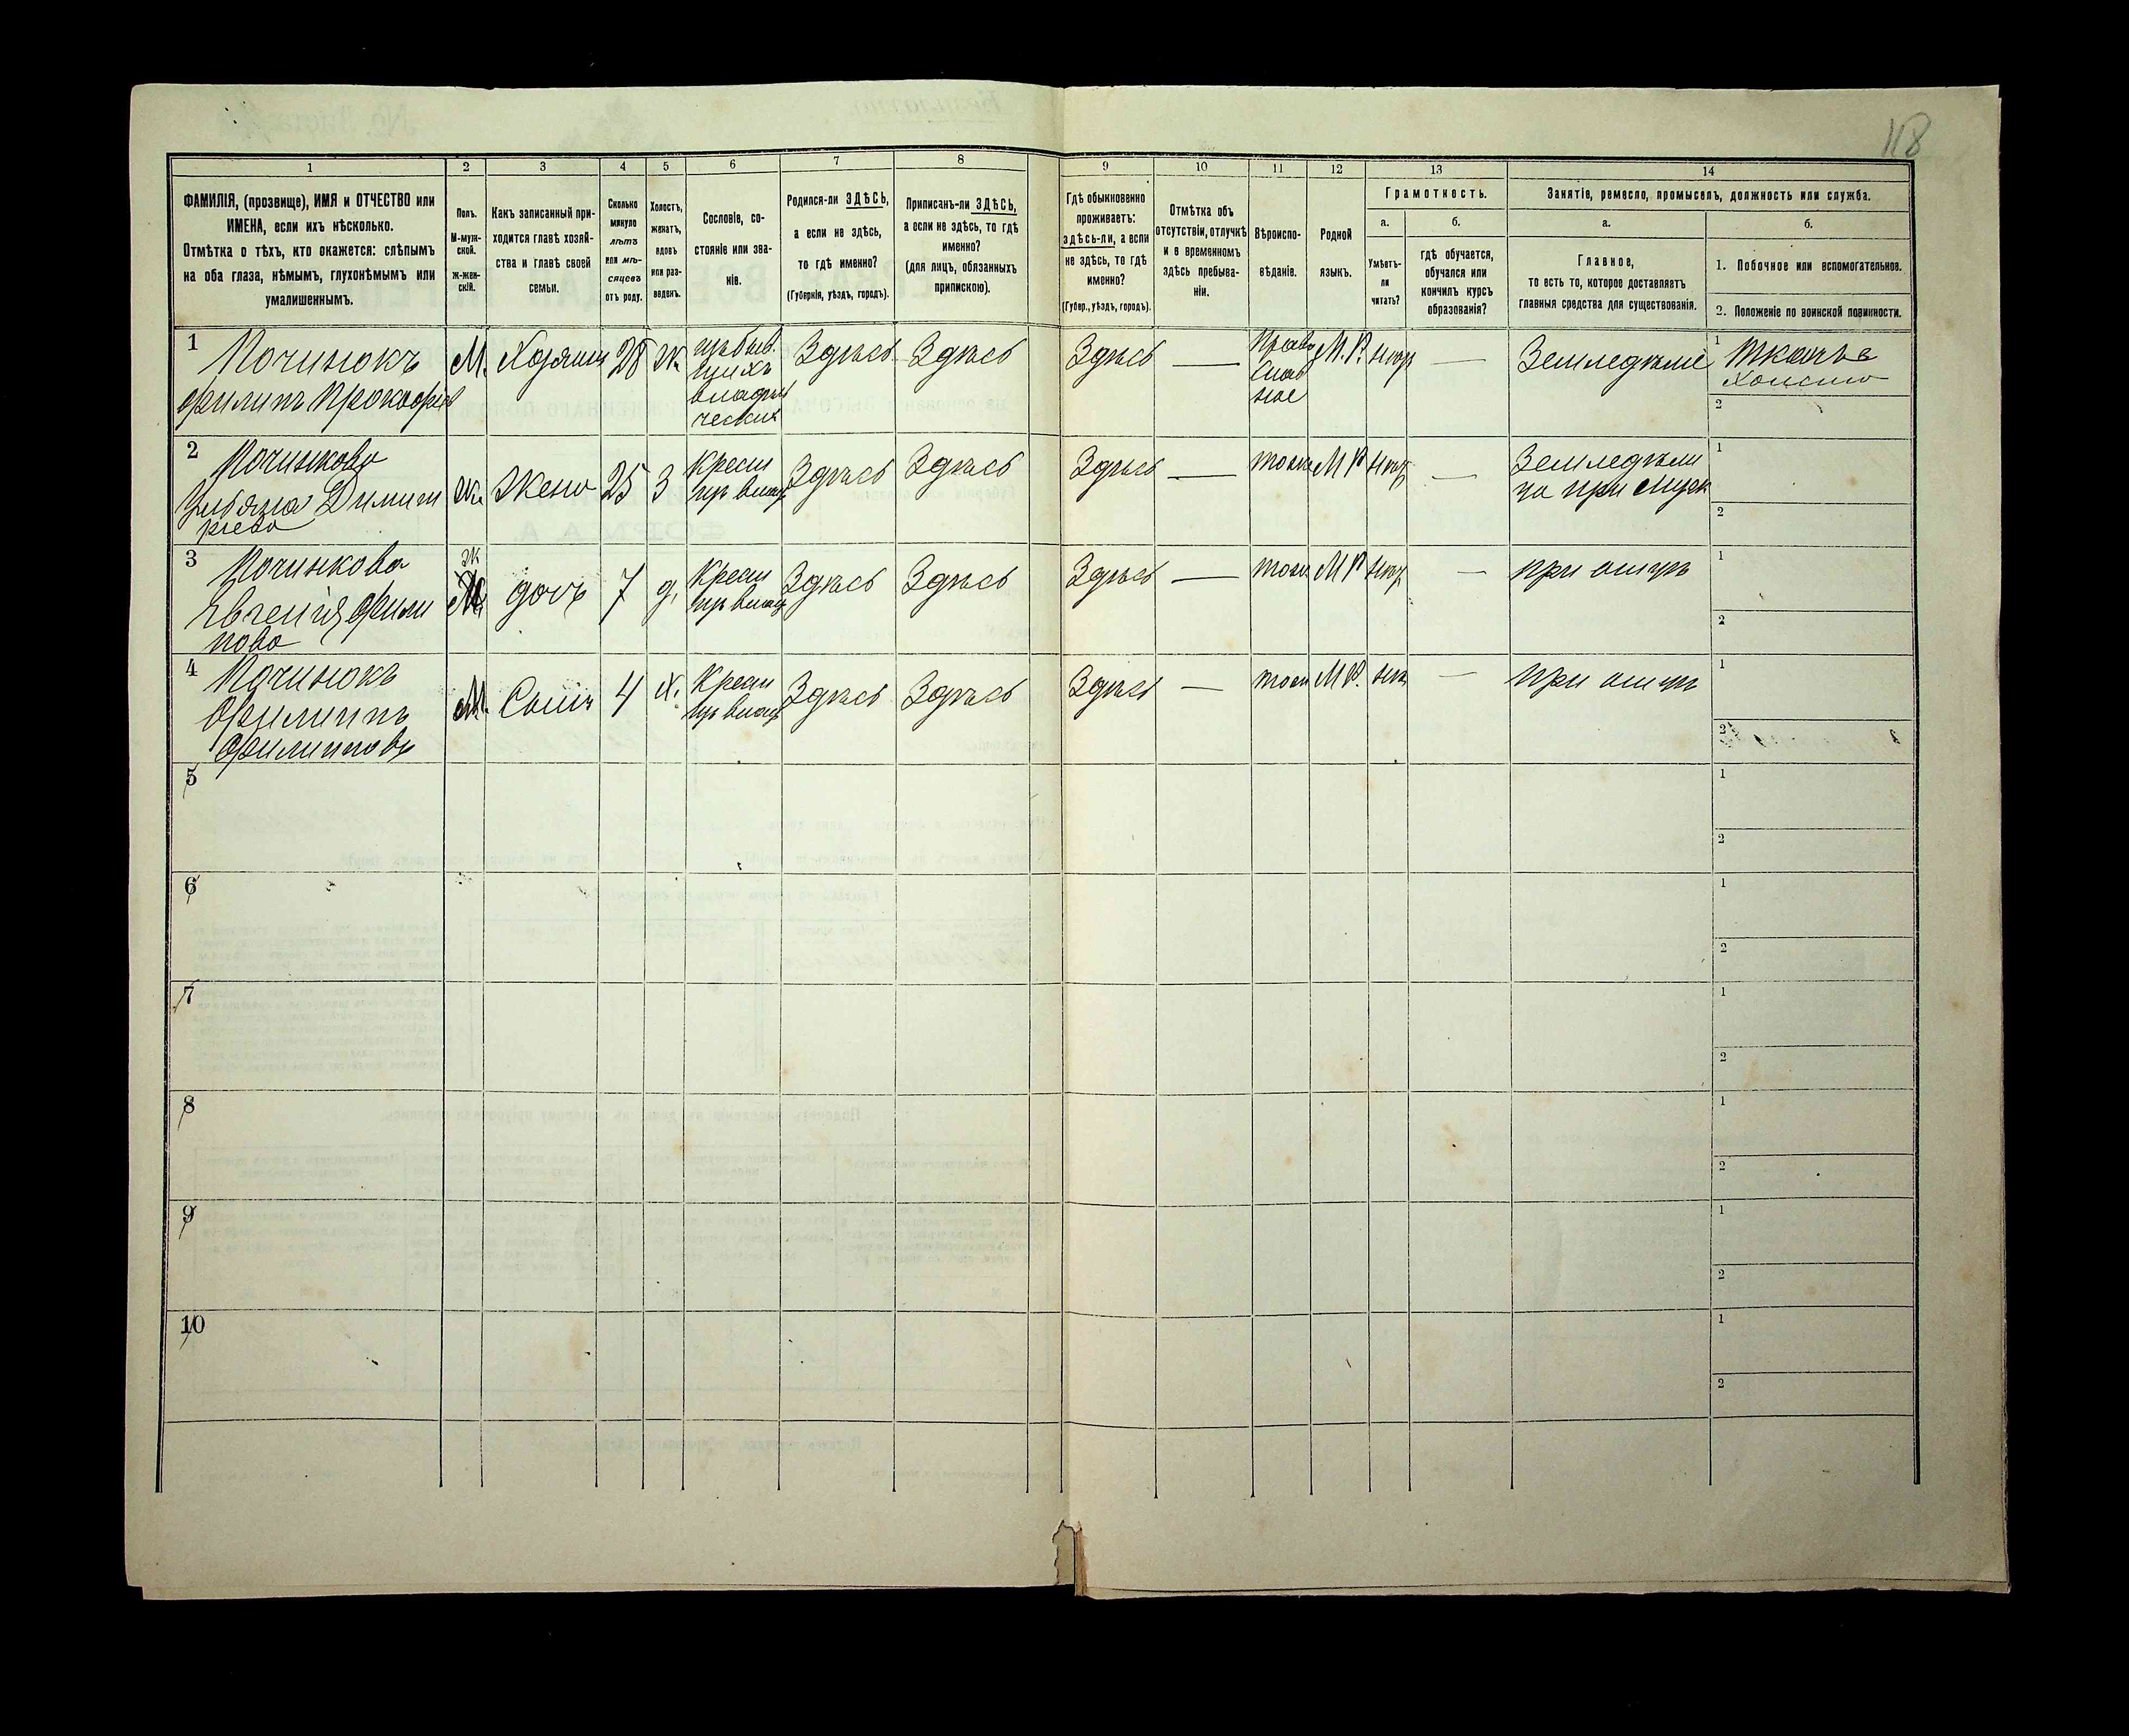 118
1 2 3 4 5 6 7 8 9 10 11 12 13 14
ФАМИЛІЯ, (прозвище), ИМЯ и ОТЧЕСТВО или
ИМЕНА, если ихъ нѣсколько.
Отмѣтка о тѣхъ, кто окажется: слѣпымъ
на оба глаза, нѣмымъ, глухонѣмымъ или
умалишеннымъ.
Полъ.
М-муж-
ской.
Ж-жен-
скій.
Какъ записанный при-
ходится главѣ хозяй-
ства и главѣ своей
семьи.
Сколько
минуло
лѣтъ
или мѣ-
сяцевъ
отъ роду.
Холостъ,
женатъ,
вдовъ
или раз-
веденъ.
Сословіе, со-
стояніе или зва-
ніе.
Родился-ли ЗДѢСЬ,
а если не здѣсь,
то гдѣ именно?
(Губернія, уѣздъ, городъ).
Приписанъ-ли ЗДѢСЬ,
а если не здѣсь, то гдѣ
именно?
(для лицъ, обязанныхъ
припискою).
Гдѣ обыкновенно
проживаетъ:
здѣсь-ли, а если
не здѣсь, то гдѣ
именно?
(Губер., уѣздъ, городъ).
Отмѣтка объ
отсутствіи, отлучкѣ
и о временномъ
здѣсь пребыва-
ніи.
Вѣроиспо-
вѣданіе.
Родной
языкъ.
Грамотность.
а.
Умѣетъ-
ли
читать?
б.
гдѣ обучается,
обучался или
кончилъ курсъ
образованія?
Занятіе, ремесло, промыселъ, должность или служба.
а.
Главное,
то есть то, которое доставляетъ
главныя средства для существованія.
б.
1. Побочное или вспомогательное.
2. Положеніе по воинской повинности.
1
Починокъ
Филипъ Прокофьев
М. Хозяин 28 ж.
владѣль
ческихъ
Здѣсь Здѣсь Здѣсь —
Право
слав
ное
М. Р. —
Земледѣліе
1
2
2
Починкова
Ульяна Димит
риева
ж. Жена 25 З
Крест
Здѣсь Здѣсь Здѣсь —
тоже М Р —
Земледѣли
ца при муж
1
2
3
Починкова
Евгенія Фили
пова
ж
дочь 7 д.
Крест
Здѣсь Здѣсь Здѣсь —
тоже М Р —
при отцѣ
1
2
4
Починокъ
Филиппъ
Филипповъ
М. Сынъ 4 х.
Крест
Здѣсь Здѣсь Здѣсь —
тоже М Р. —
при отцѣ
1
2
5
1
2
6
1
2
7
1
2
8
1
2
9
1
2
10
1
2